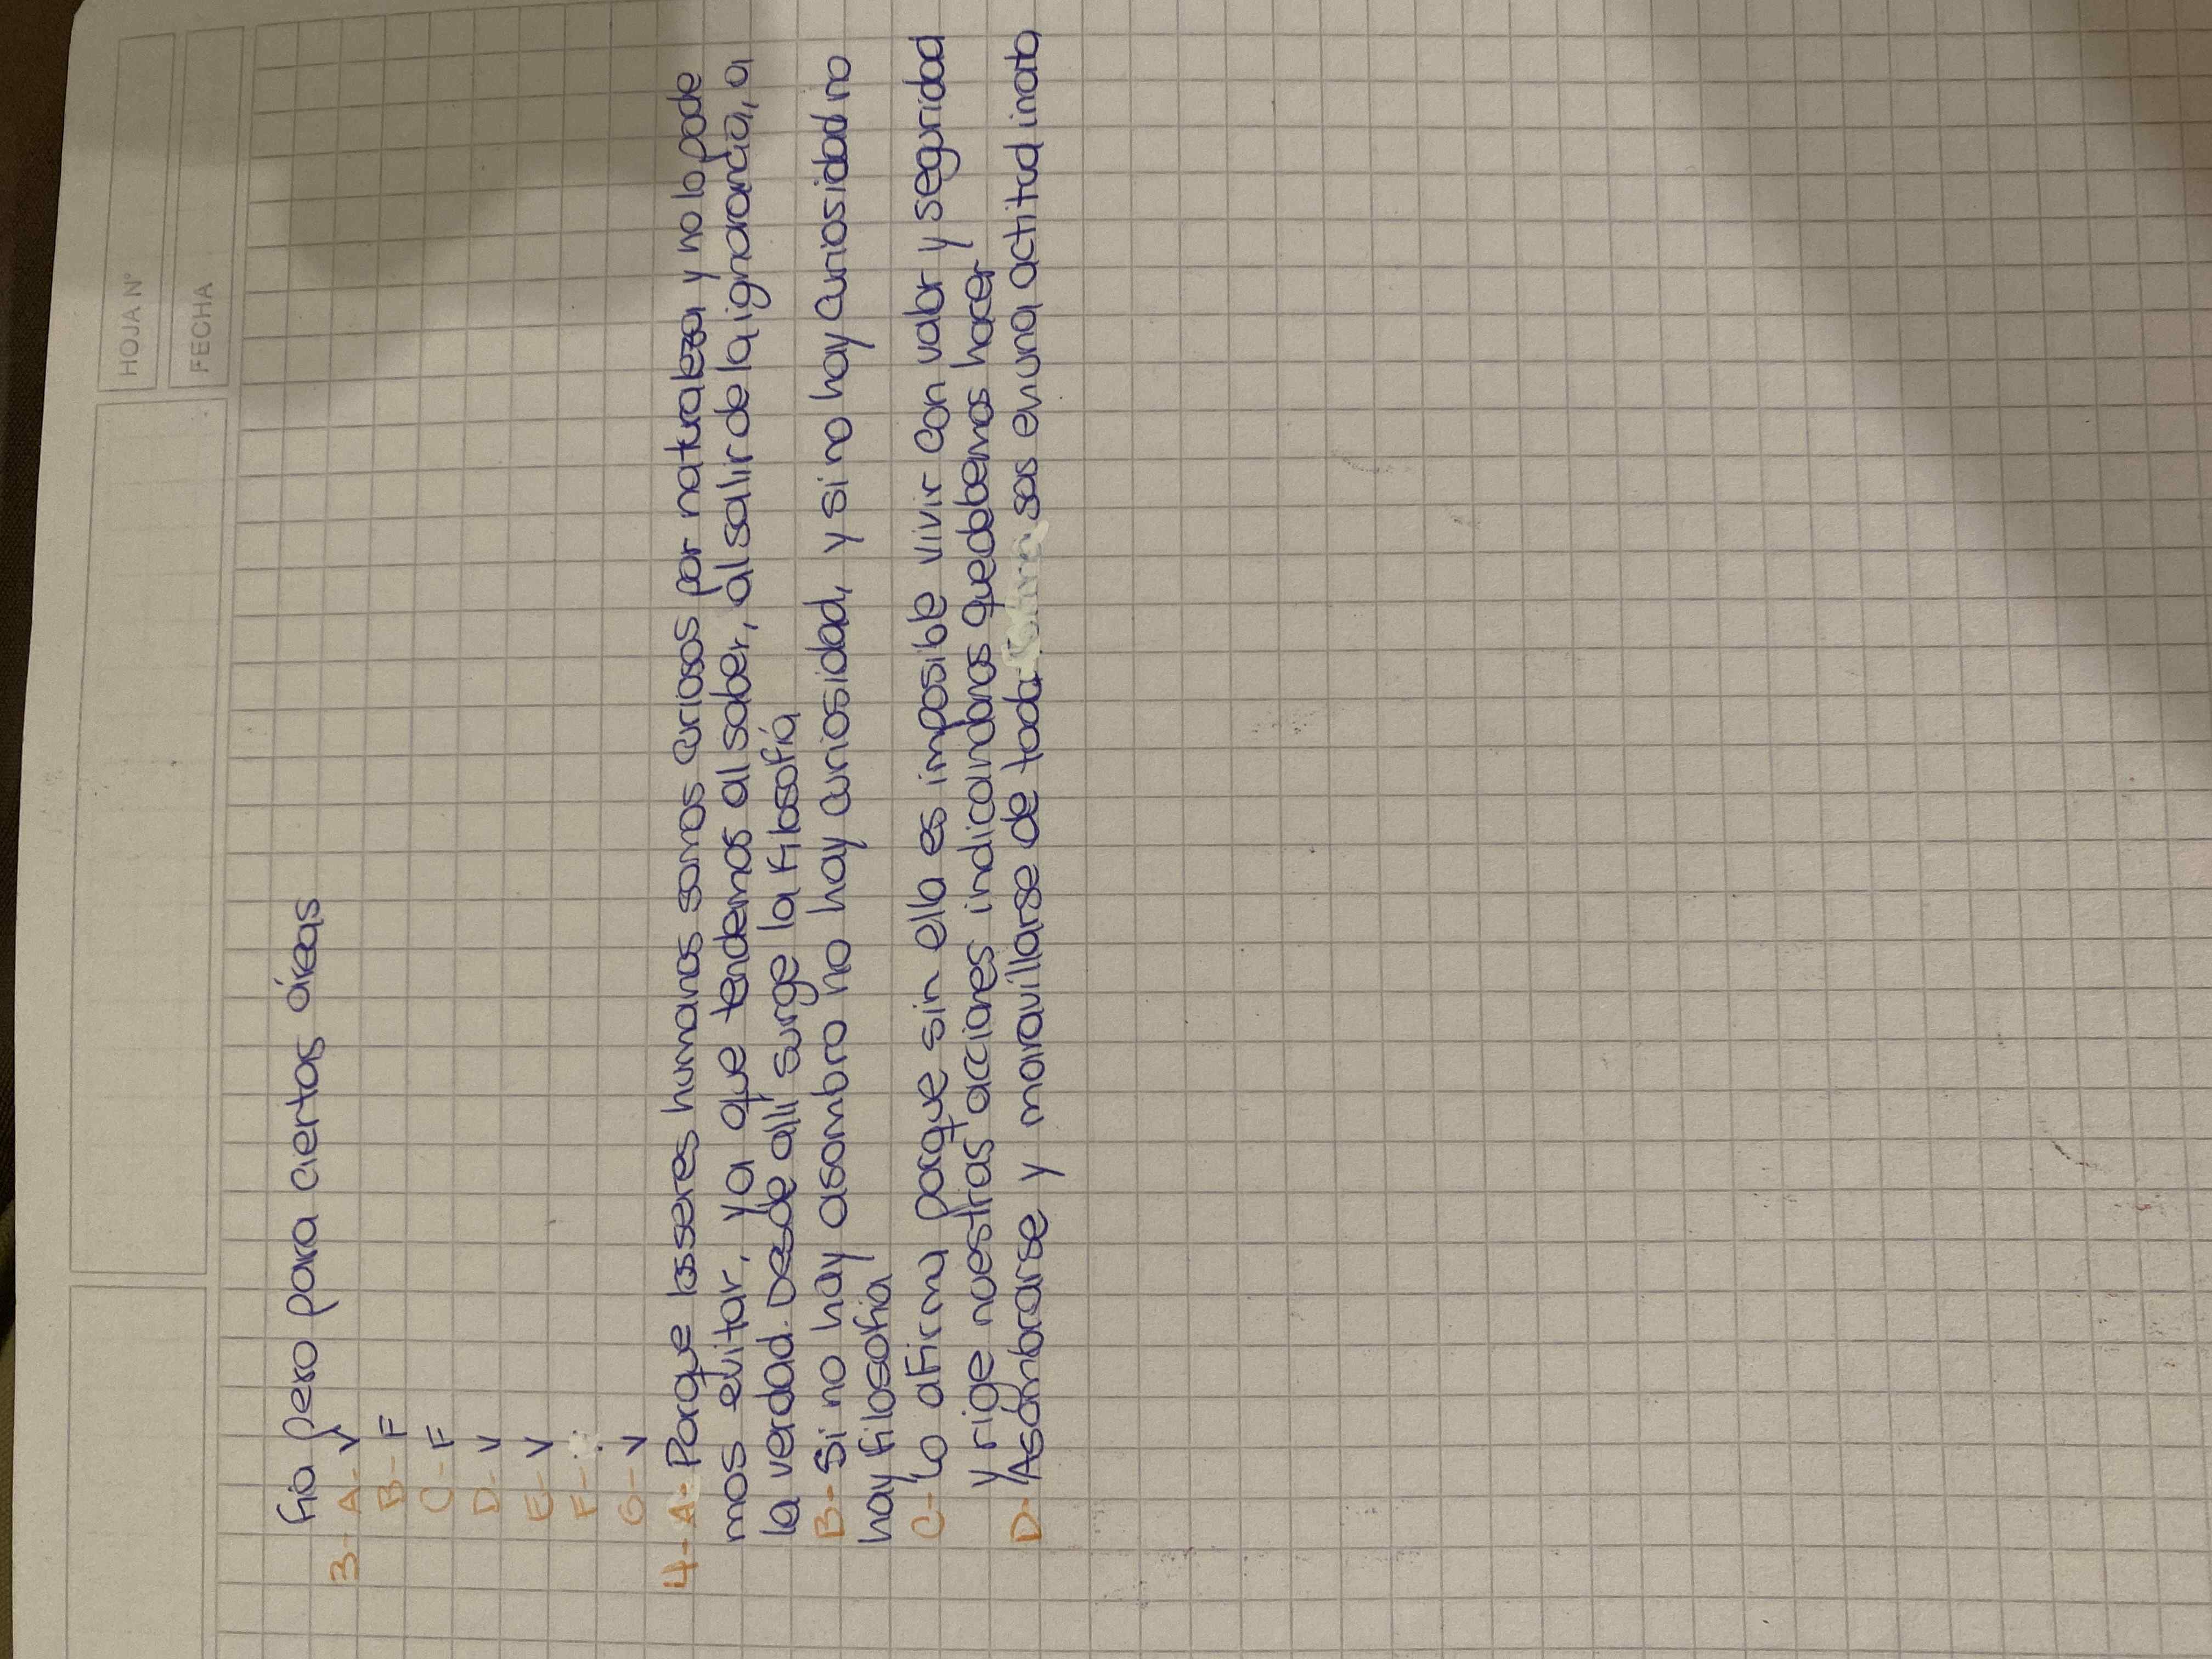 HOJA Nº
FECHA
fia pero para ciertas áreas
3- A- V
B- F
C- F
D- V
E- V
F-
G- V
4- A- Porque los seres humanos somos curiosos por naturaleza y no lo pode
mos evitar, ya que tendemos al saber, al salir de la ignorancia, a
la verdad. Desde allí surge la filosofía
B- Si no hay asombro no hay curiosidad, y si no hay curiosidad no
hay filosofia
C- Lo afirma porque sin ella es imposible vivir con valor y seguridad
y rige nuestras acciones indicandonos que debemos hacer
D- Asombrarse y maravillarse de toda sas en una actitud inata